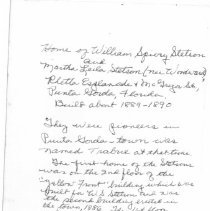 Home of William Spivy Stetson
and
Martha Leila Stetson (nee Winwood)
Retta Esplanade & McGregor St,
Punta Gorda, Florida
Built about 1889-1890
They were pioneers in
Punta Gorda - town was
named Trabue at that time
The first home of the Stetsons
was on the 2nd floor of the
"Yellow Front" building which was
built for W S Stetson and was
the second building erected in
the town, 1886. The 1st floor